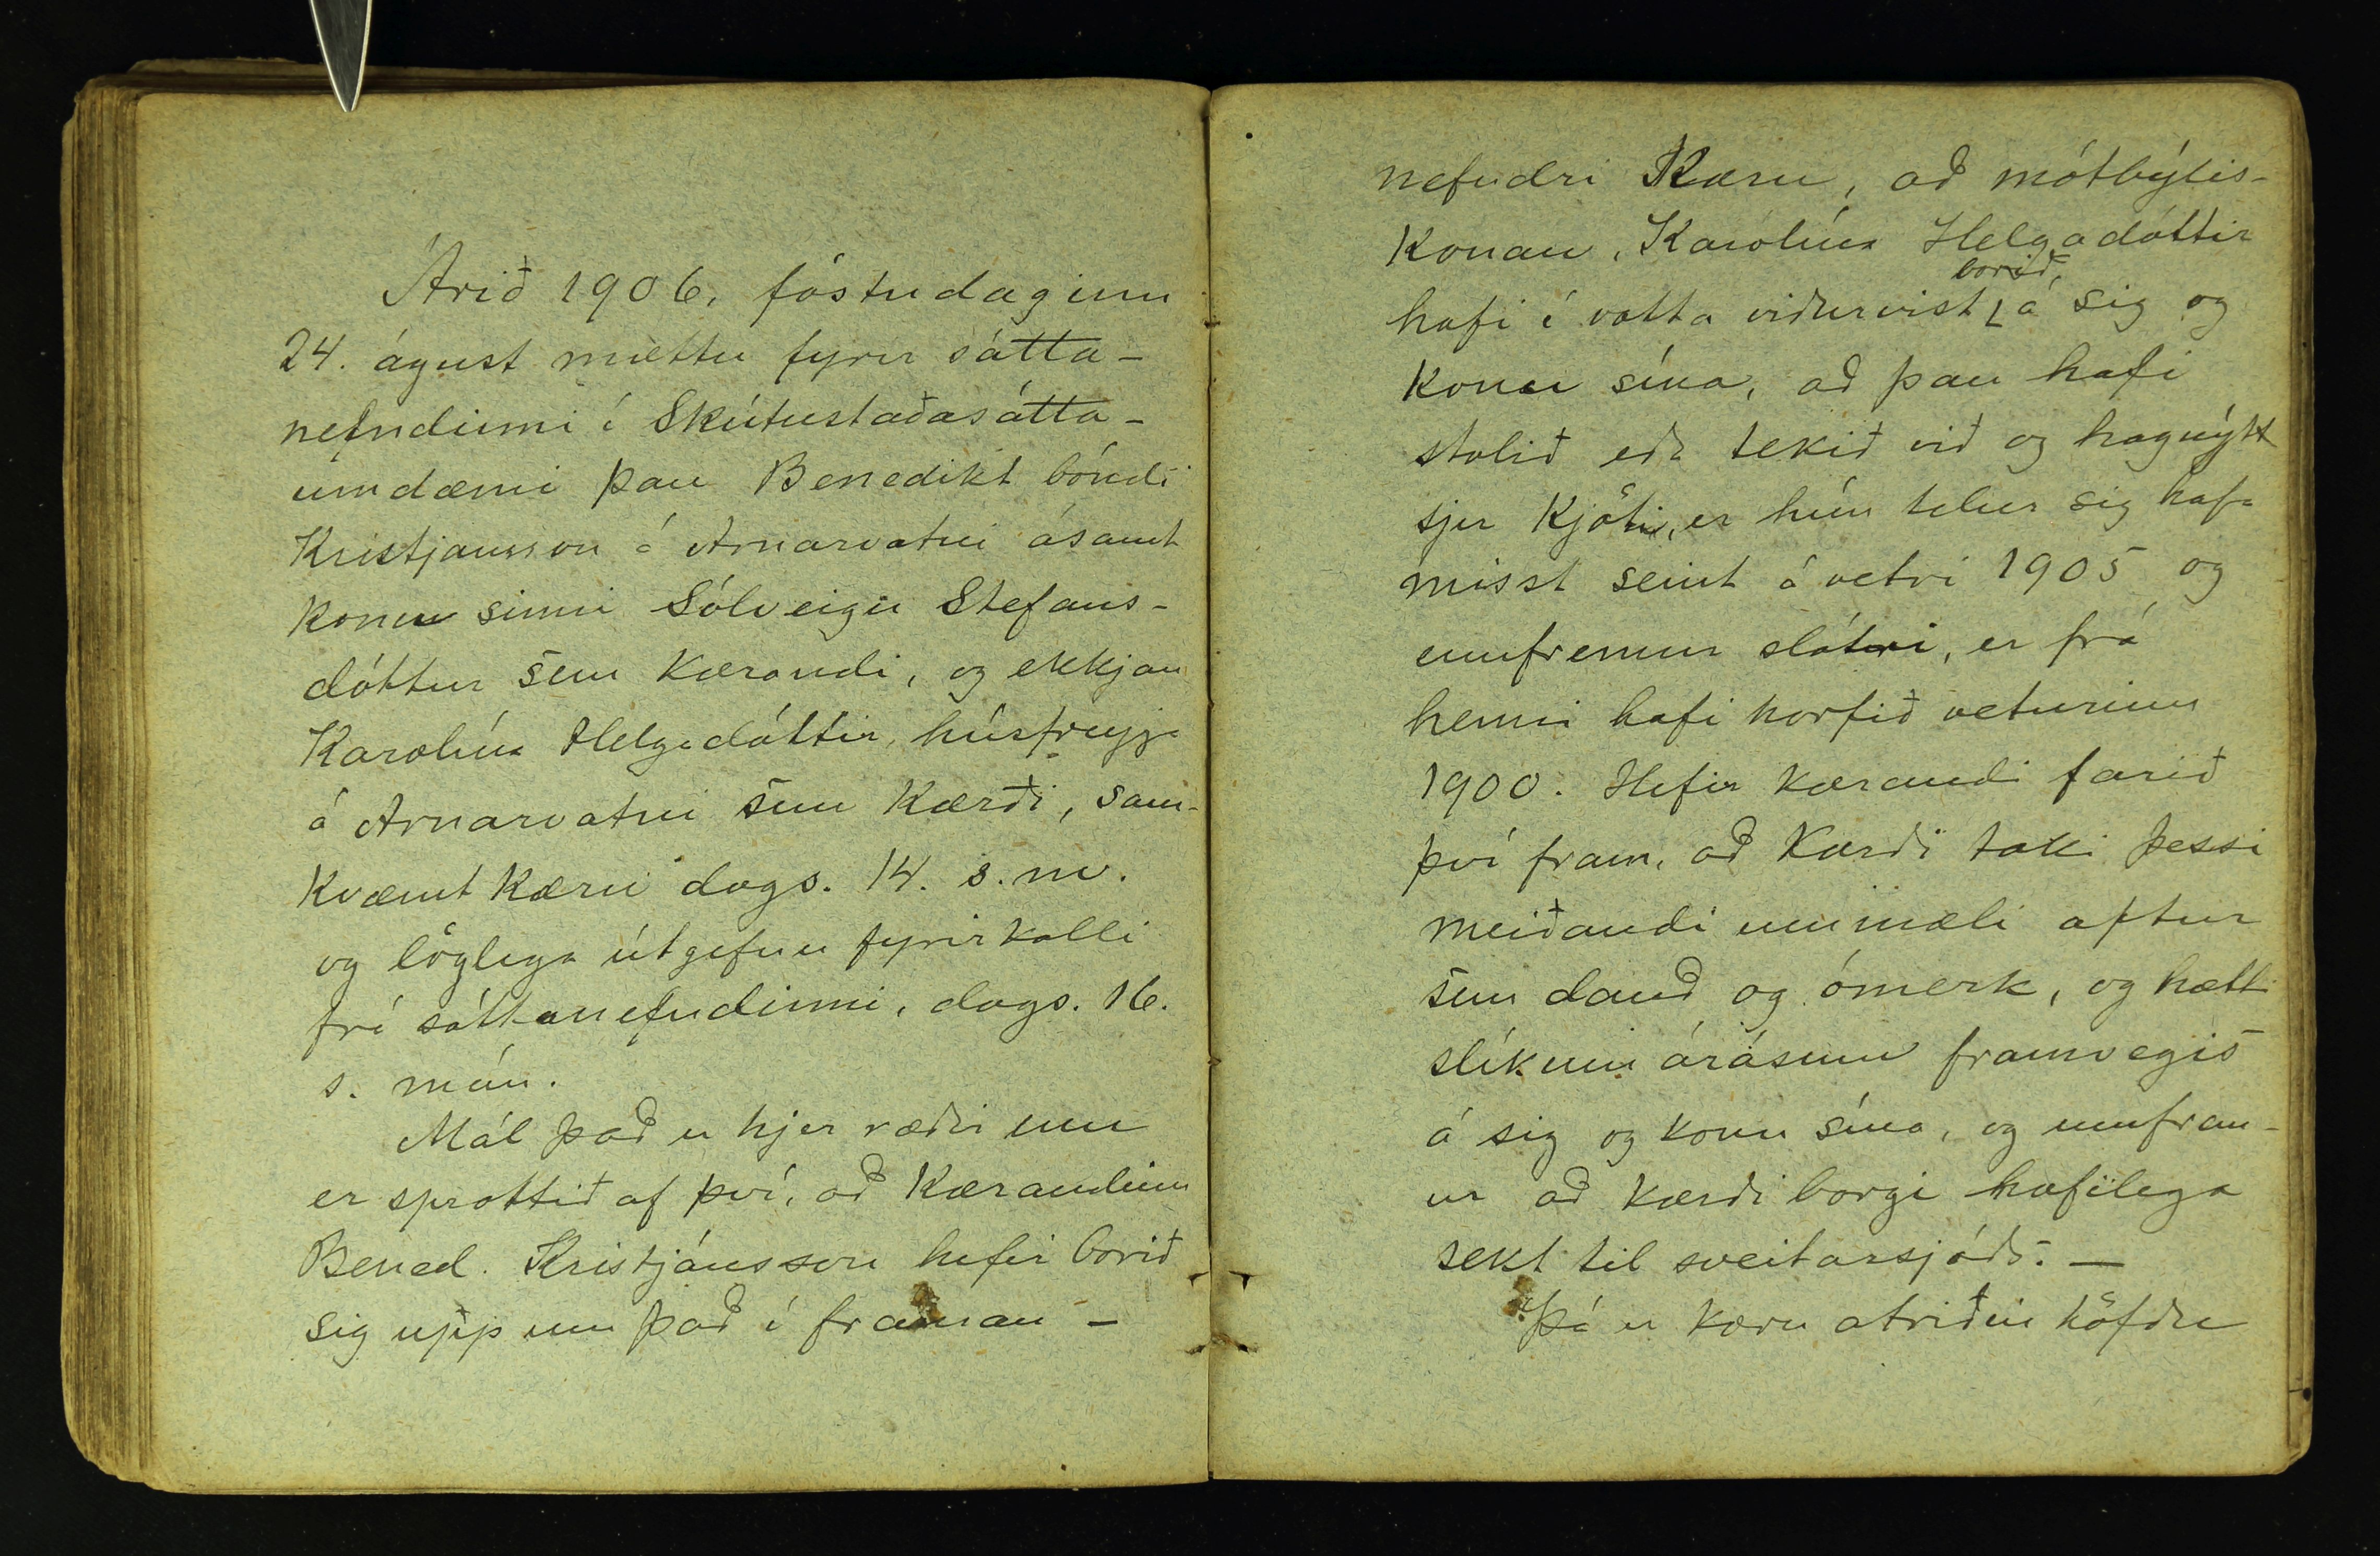 Árið 1906, föstudaginn
24. águst mættu fyrir sátta-
nefndinni í Skútustaðasátta-
umdæmi þau Benedikt bóndi
Kristjánsson á Arnarvatni ásamt
konu sinni Sólveigu Stefans-
dóttur sem kærandi, og ekkjan
Karolína Helgadóttir, húsfreyja
á Arnarvatni sem kærði, sam-
kvæmt kæru dags. 14. s.m.
og löglega útgefnu fyrirkalli
frá sáttanefndinni, dags. 16.
s. mán.
Mál það er hjer ræðir um
er sprottið af því, að kærandinn
Bened. Kristjánsson hefir borið
sig upp um það í framan-
nefndri kæru, að mótbýlis-
konan, Karólína Helgadóttir
hafi í votta viðurvist borið á sig og
konu sína, að þau hafi
stolið eða tekið við og hagnýtt
sjer kjöti, er hún telur sig hafa
misst seint á vetri 1905 og
ennfremur slátri, er frá
henni hafi horfið veturinn
1900. Hefir kærandi farið
því fram, að kærði taki þessi
meiðandi ummæli aftur
sem dauð og ómerk, og hætti
slíkum árásum framvegis
á sig og konu sína, og ennfrem-
ur að kærði borgi hæfilega
sekt til sveitarsjóðs. —
Þá er kæru atriðin höfðu